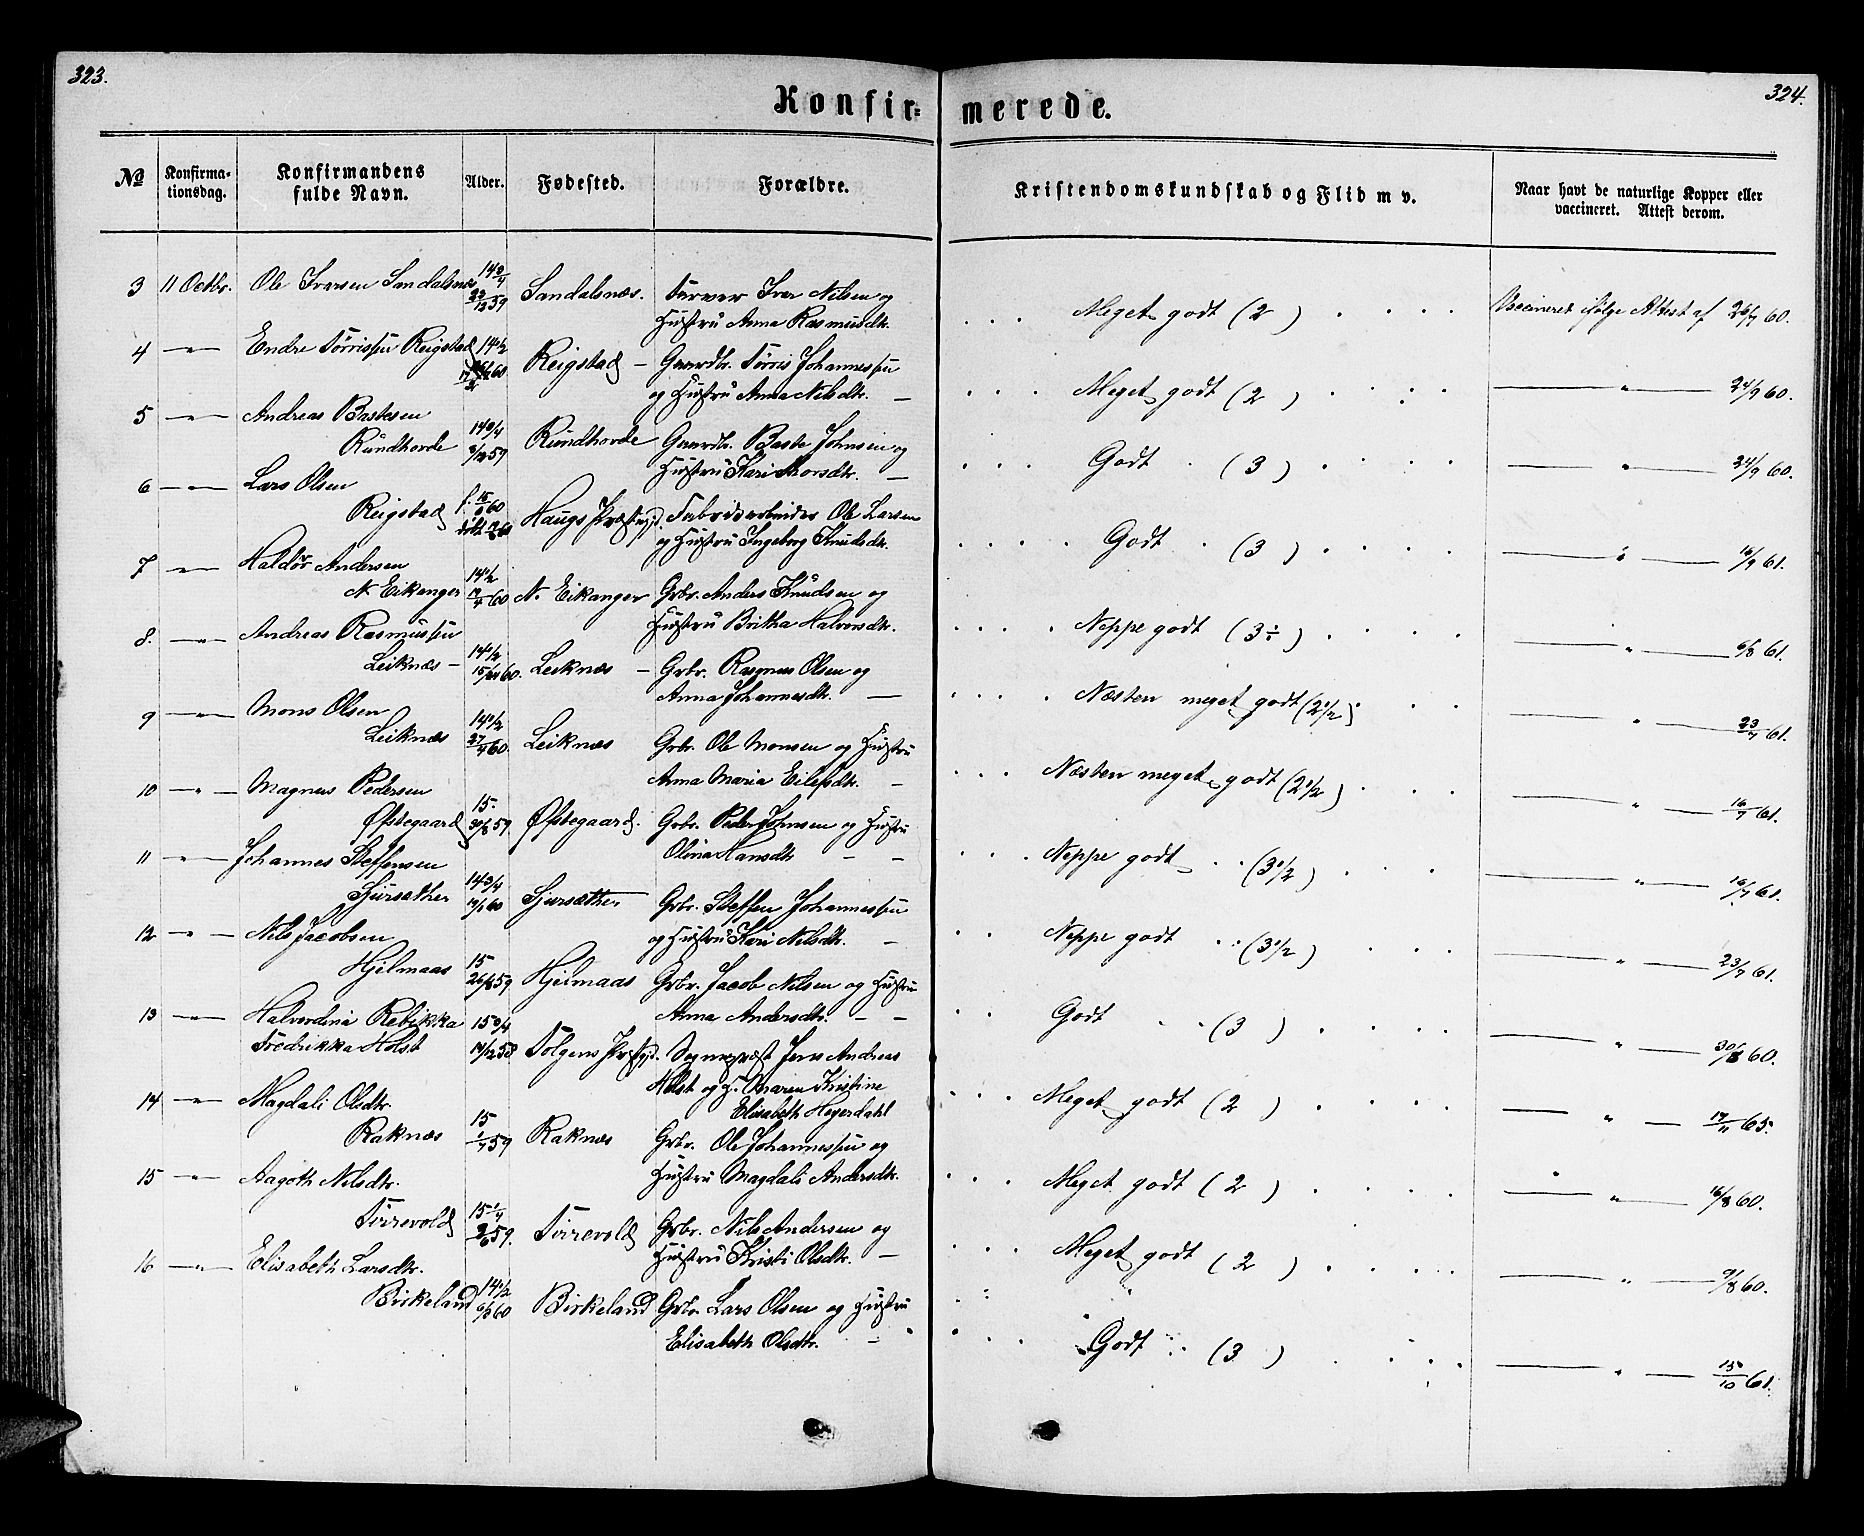 323.
324.
Konfir-merede.
No Konfirmationsdag. Konfirmandens fulde Navn. Alder. Fødested. Forældre. Kristendomskundskab og Flid m v. Naar havt de naturlige Kopper eller vaccineret. Attest derom.
3 11 Octbr. Ole Iversen Sandalsnæs 14 3/4 Sandalsnæs. Farver Iver Nilsen og
23/12 59 Hustru Anna Rasmusdtr. Meget godt (2) Vaccineret ifølge Attest af 60.
4 — " — Endre Tørrissen Reigstad 14 1/2 Reigstad — Gaardbr. Tørris Johannessen
60 og Hustru Anna Nilsdtr. — Meget godt (2) — " — 24/9 60.
5 — " — Andreas Bastesen
Rundhovde 14 3/4 8/12 59 Rundhovde Gaardbr. Baste Johnsen og
Hustru Kari Thorsdtr. — Godt (3) — " — 24/9 60.
6 — " — Lars Olsen
Reigstad f. 60 Haugs Præstegjd. Fabrikarbeider Ole Larsen
og Hustru Ingeborg Knudsdtr. Godt (3) — " — 16/9 61.
7 — " — Haldor Andersen
N. Eikanger 14 1/2 60 N. Eikanger Grbr. Anders Knudsen og
Hustru Britha Halvorsdtr. Neppe godt (3 ÷) — " — 6/8 61.
8. — " — Andreas Rasmussen
Leiknæs — 14 1/2 60. Leiknæs — Grbr. Rasmus Olsen og
Anna Johannesdtr. — Næsten meget godt (2 1/2) — " — 23/7 61.
9 — " — Mons Olsen
Leiknæs 14 1/2 27/4 60. Leiknæs Grbr. Ole Monsen og Hustru
Anna Maria Eilefsdtr. — Næsten meget godt (2 1/2) — " — 16/7 61.
10 — " — Magnus Pedersen
Øfstegaard 15. 30/8 59 Øfstegaard. Grbr. Peder Johnsen og Hustru
Olina Hansdtr — — Neppe godt (3 1/2) — " — 16/7 61.
11 — " — Johannes Steffensen
Sjursæther 14 3/4 19/1 60 Sjursæther Grbr. Steffen Johannessen
og Hustru Kari Nilsdtr. — Neppe godt (3 1/2) — " — 23/7 61.
12 — " — Nils Jacobsen
Hjelmaas 15 26/8 59 Hjelmaas Grbr. Jacob Nilsen og Hustru
Anna Andersdtr. — — Godt (3) — " — 30/8 60.
13 — " — Halvordina Rebekka 15 3/4
Fredrikka Holst 19/12 58 Tolgens Præstegjd. Sognepræst Jens Andreas
Holst og H. Maren Kristine
Elisabeth Heyerdahl Meget godt (2) — " — 65.
14 — " — Magdali Olsdtr.
Raknæs 15 59 Raknæs Grbr. Ole Johannessen og
Hustru Magdali Andersdtr. Meget godt (2) — " — 16/8 60.
15 — " — Aagoth Nilsdtr.
Torrevold 15 1/4 59. Torrevold Grbr. Nils Andersen og
Hustru Kristi Olsdtr. — Meget godt (2) — " — 9/8 60.
16 — " — Elisabeth Larsdtr.
Birkeland 14 1/2 60 Birkeland Grbr. Lars Olsen og Hustru
Elisabeth Olsdtr. — Godt (3) — " — 15/10 61.